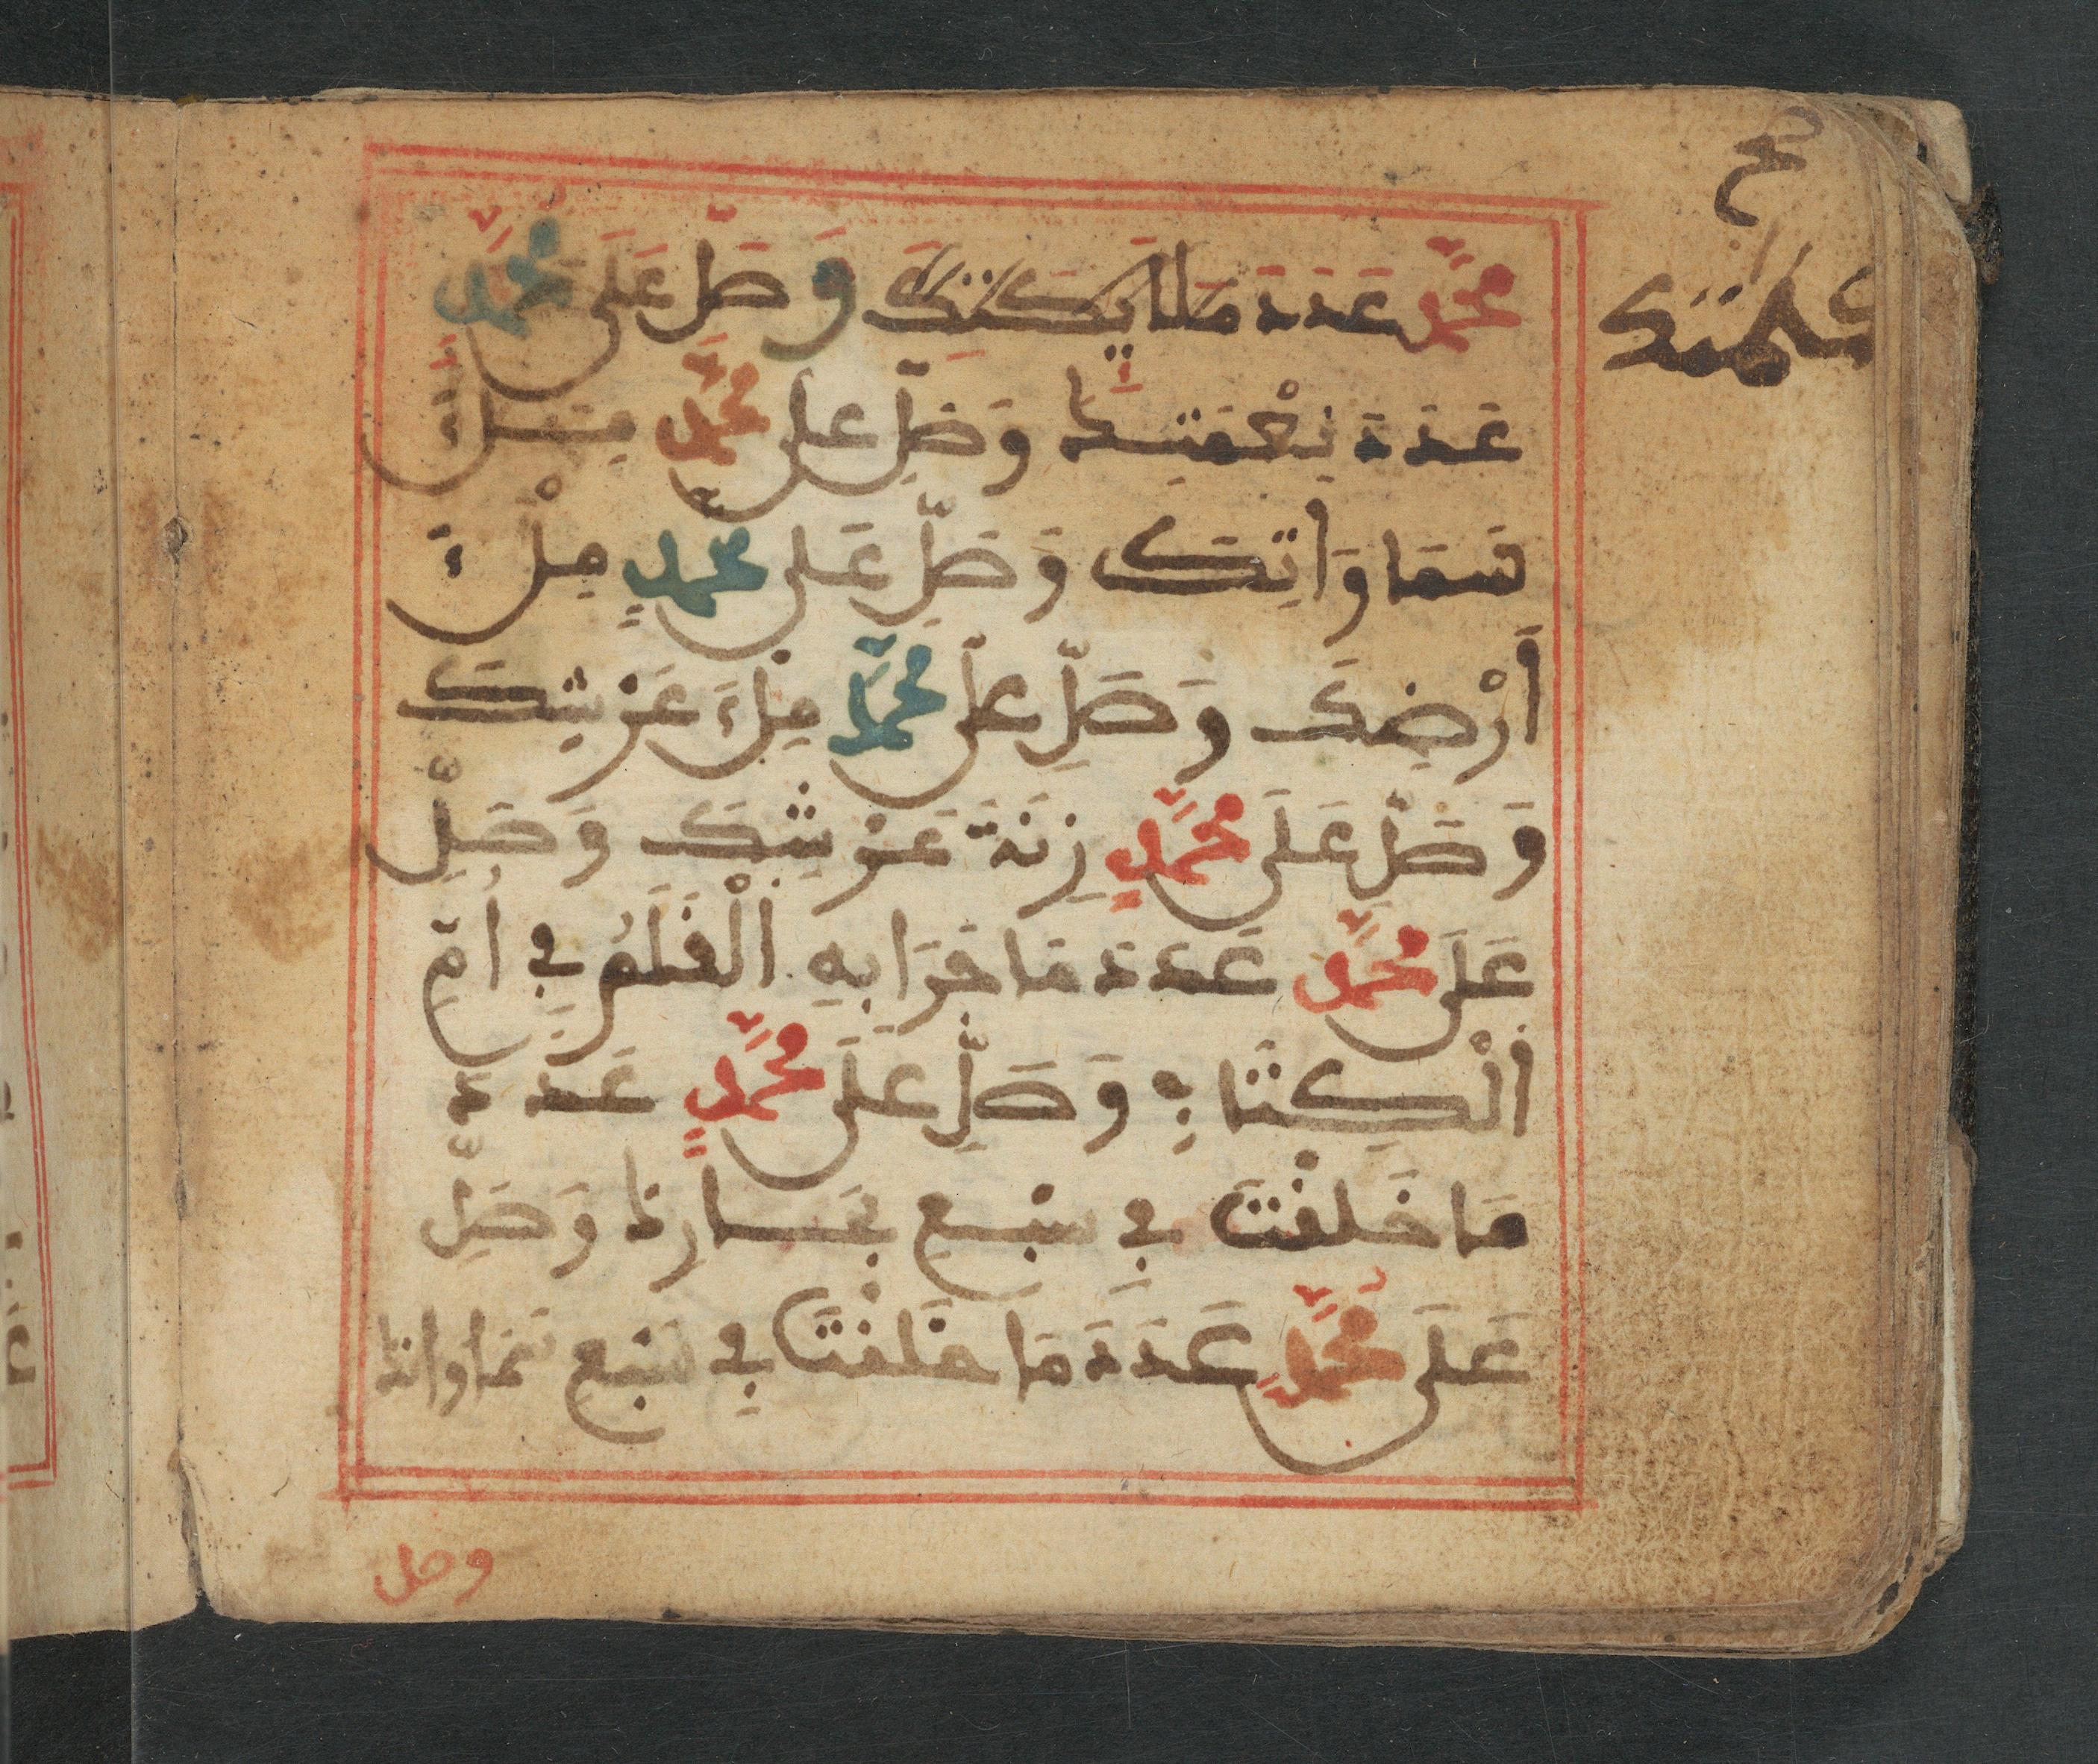 محمد عدد ملايكتك وصل على محمد
عدد نعمتك وصل على محمد ملء
سماواتك وصل على محمد ملء
أرضك وصل على محمد ملء عرشك
وصل على محمد زنة عرشك وصل
على محمد عدد ما جرا به القلم في ام
الكتاب وصل على محمد عدد
ما خلقت في سبع بحارك وصل
على محمد عدد ما خلقت في سبع سماواتك
وصل